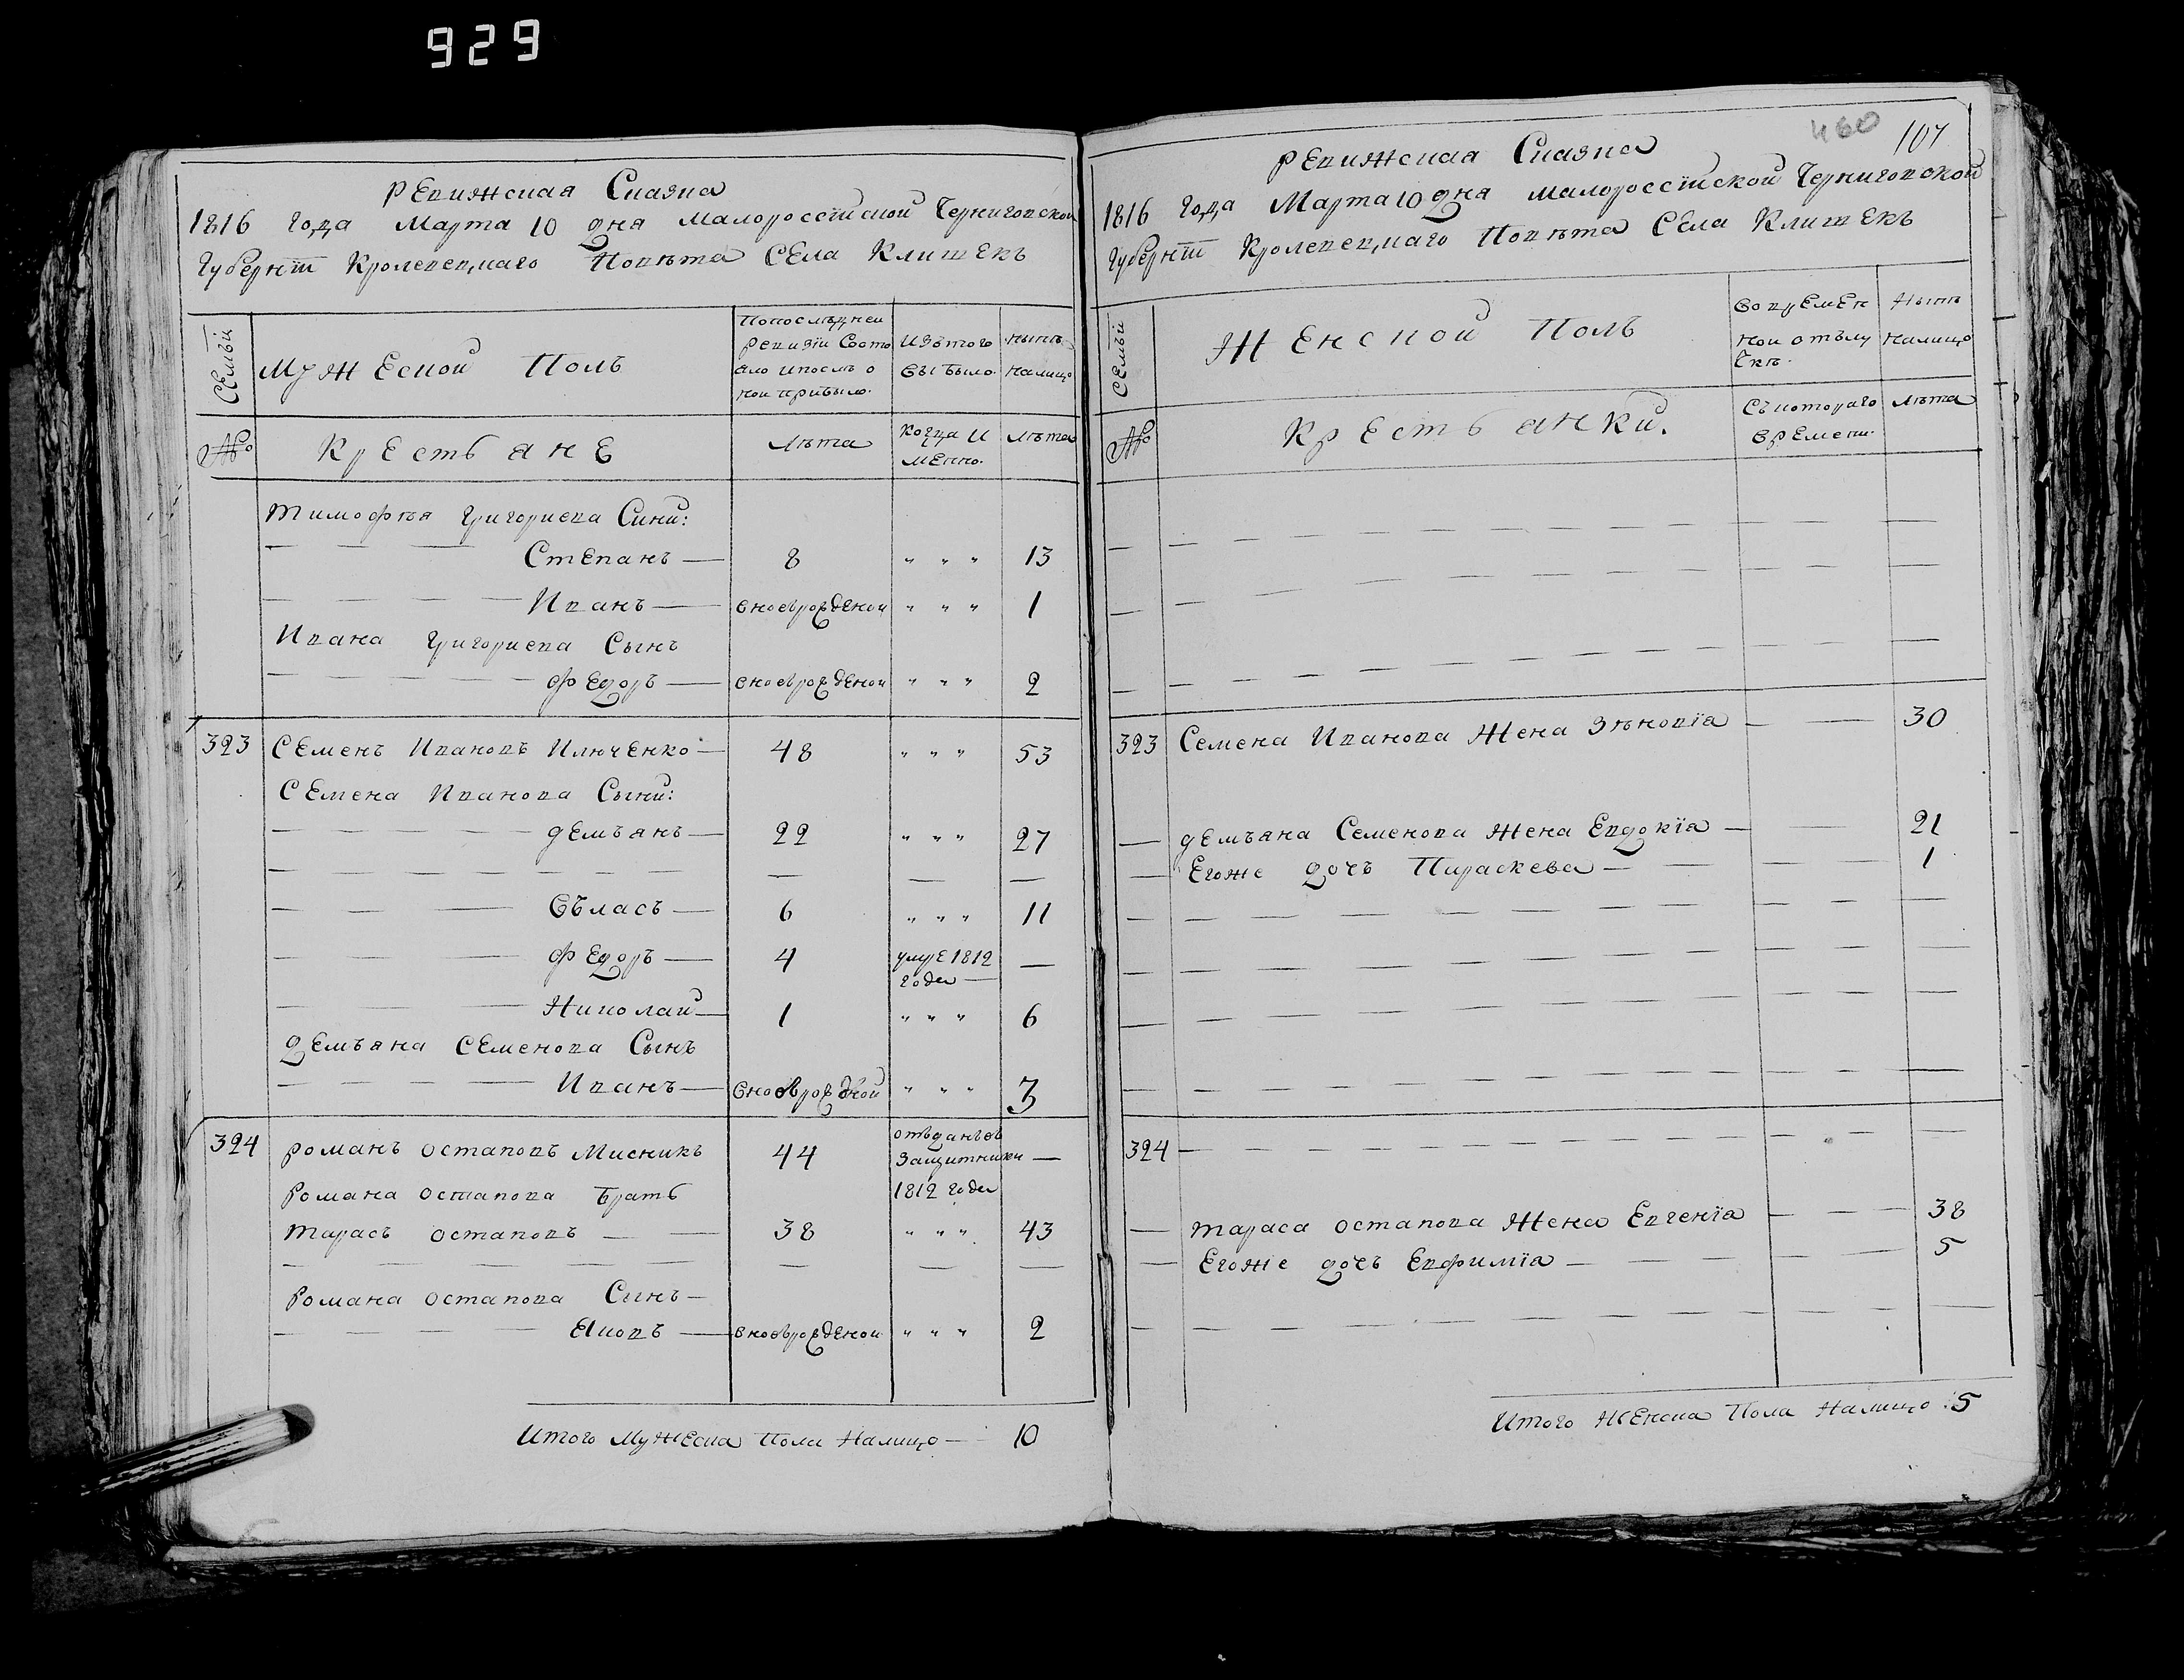 929
Ревижская Сказка
1816 Года Марта 10 дня Малороссійской Черниговской
Губерніи Кролевецкаго Повѣта Села Клишекъ
Семьи
Мужеской Полъ
Попослѣдней
ревизіи Состо
яло ипослѣ о
ной прибыло.
Изътого
выбыло.
нынѣ
налицо
№
Крестьяне
Лѣта
Когда и
менно.
Лѣта
Тимофѣя Григориева Сини:
Степанъ — 8 " " " 13
Иванъ — вноврожденой " " " 1
Ивана Григориева Сынъ
Федоръ — вноврожденой " " " 2
323 Семенъ Ивановъ Илюченко — 48 " " " 53
Семена Иванова Сыни:
Демъянъ — 22 " " " 27
Въласъ — 6 " " " 11
Федоръ — 4 умре 1812 —
года —
Николай — 1 " " " 6
Демъяна Семенова Сынъ
Иванъ — вноврожденой " " " 3
324 Романъ Остаповъ Мисникъ 44 отъданъ въ
защитники —
1812 года
Романа Остапова Братъ
Тарасъ Остаповъ — — 38 " " " 43
Романа Остапова Сынъ —
Яковъ — вноврожденой " " " 2
Итого Мужеска Пола Налицо — 10
460 107
Ревижская Сказка
1816 Года Марта 10 дня Малороссійской Черниговской
Губерніи Кролевецкаго Повѣта Села Клишекъ
Семьи
Женской Полъ
Вовремен
ной отълу
чкѣ.
Нынѣ
налицо
№
Крестьянки.
Съкотораго
времени.
Лѣта
323 Семена Иванова Жена Зѣновія — — 30
— Демъяна Семенова Жена Евдокія — — 21
— Егоже дочъ Параскева — — — 1
324
— Тараса Остапова Жена Евгенія — — — 38
— Егоже дочъ Евфимія — — — 5
Итого Женска Пола Налицо : 5